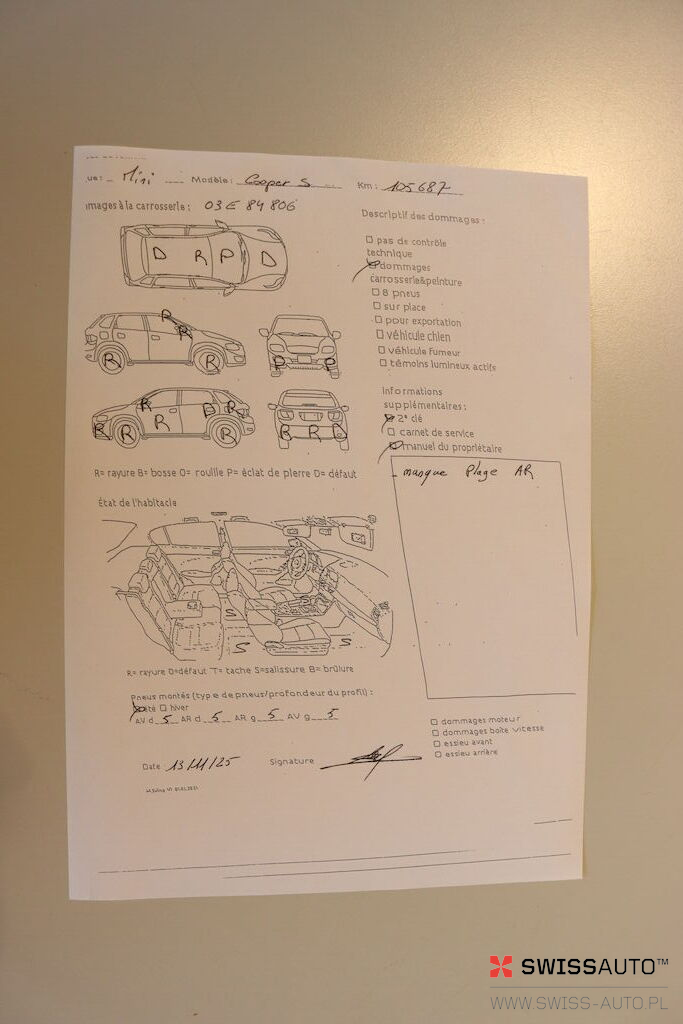 ue: Mini Modèle: Cooper S Km: 105687
mages à la carrosserie: 03E 84 806
Descriptif des dommages:
pas de contrôle
technique
dommages
carrosserie&peinture
8 pneus
sur place
pour exportation
véhicule chien
véhicule fumeur
témoins lumineux actifs
D R P D
R
R
R R
P P
R B R
R
R R R
B R R
Informations
supplémentaires:
2e clé
carnet de service
manuel du propriétaire
- manque Plage AR
R= rayure B= bosse O= rouille P= éclat de pierre D= défaut
État de l'habitacle
S S
S S
R= rayure D=défaut T= tache S=salissure B= brûlure
Pneus montés (type de pneus/profondeur du profil):
été hiver
AV d 5 AR d 5 AR g 5 AV g 5
dommages moteur
dommages boîte vitesse
essieu avant
essieu arrière
Date: 13/11/25 Signature
SWISSAUTO™
WWW.SWISS-AUTO.PL